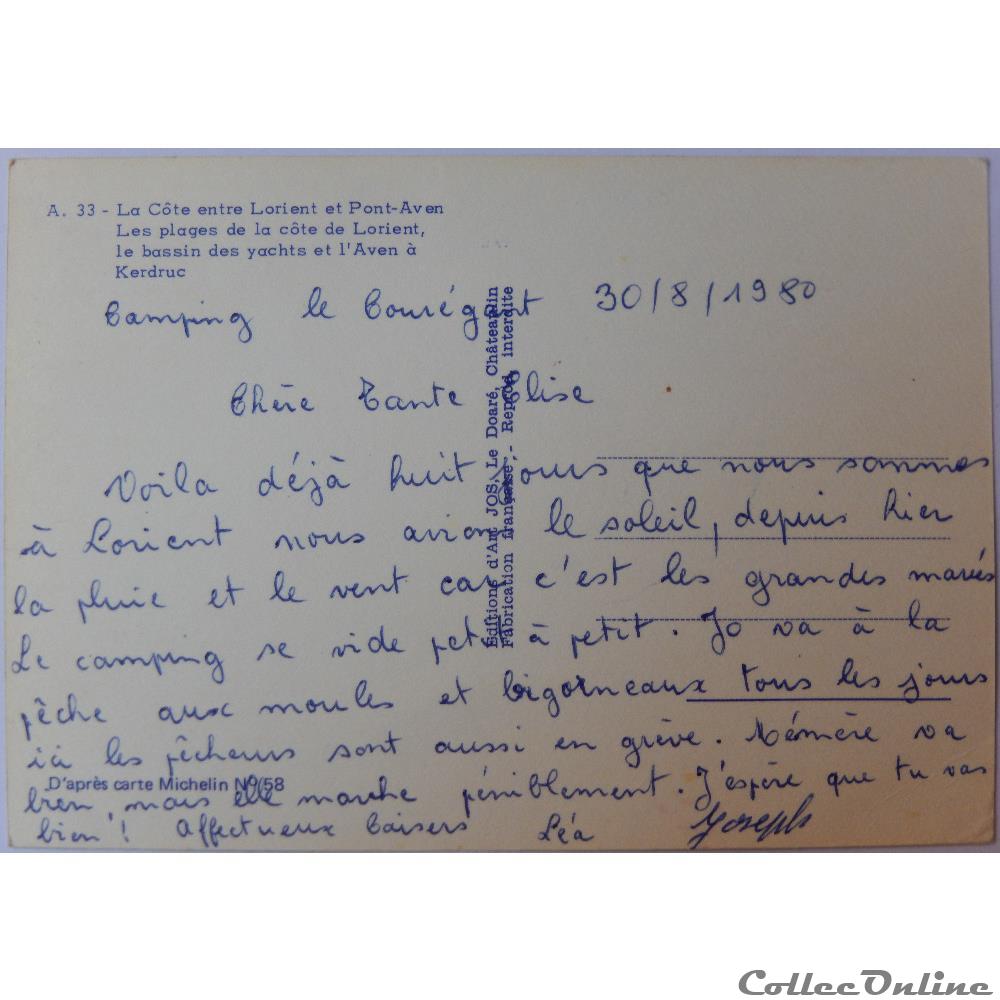 A. 33 - La Côte entre Lorient et Pont-Aven
Les plages de la côte de Lorient,
le bassin des yachts et l'Aven à
Kerdruc
Camping le Courégant 30/8/1980
Chère Tante Elise
Voila déjà huit jours que nous sommes
à Lorient nous avions le soleil, depuis hier
la pluie et le vent car c'est les grandes marées
Le camping se vide petit à petit. Jo va à la
pêche aux moules et bigorneaux tous les jours
ici les pêcheurs sont aussi en grève. Mémère va
bien mais elle marche péniblement. J'espère que tu vas
bien ! Affectueux baisers Léa Joseph
D'après carte Michelin No 58
Editions d'Art JOS, Le Doaré, Châteaulin
Fabrication française - Reprod. interdite
CollecOnline